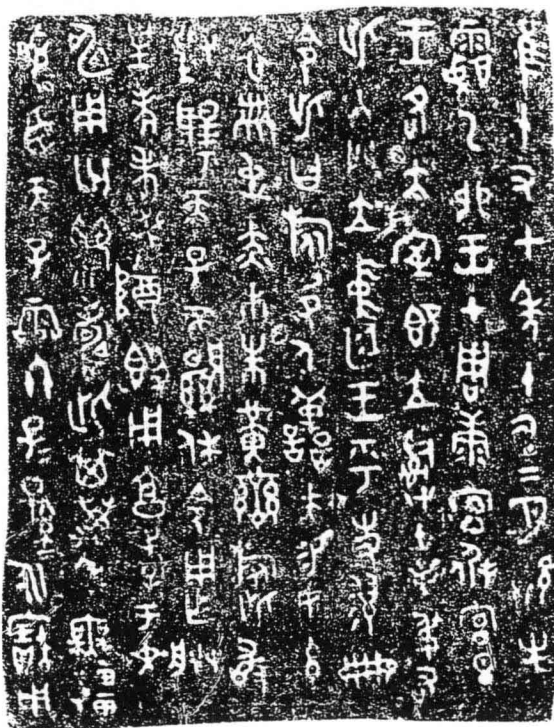 隹十又七年十又二月既生
霸乙卯王才周康宮㝨宮旦
王各大室即立𤔲土毛弔右
此入門立中廷王乎史翏冊
令此曰旅邑人善夫易女玄
衣黹屯赤巿朱黃䜌旅此敢
對揚天子不顯休令用乍朕
皇考癸公𨟻用享孝于文
申用匄眉壽此其萬年無彊
畯臣天子霝冬子子孫孫永寶用